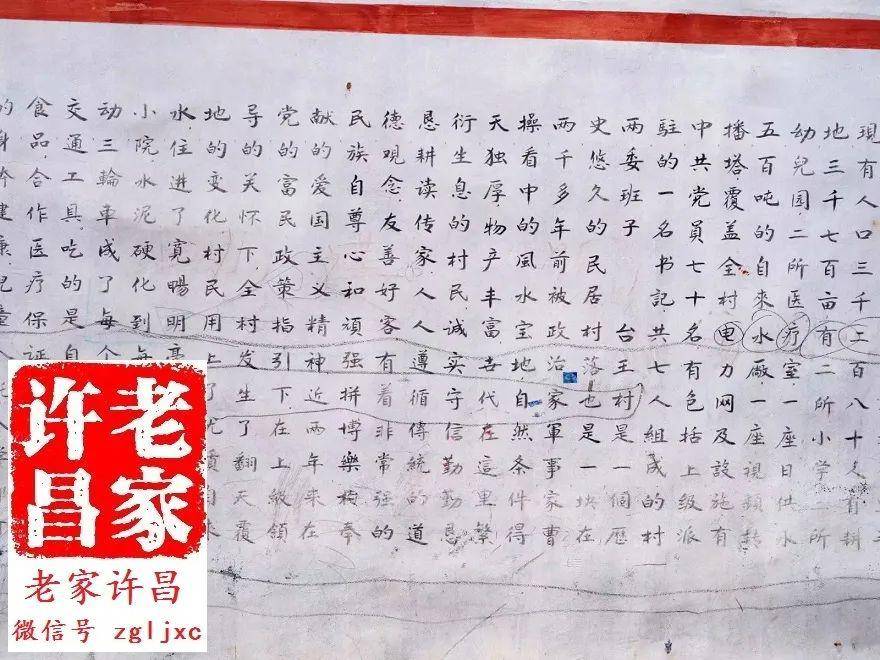 現有人口三千二百八十人有耕
地三千七百亩有二所小学一所
幼兒园二所医疗室一座日供水
五百吨的自來水廠一座視頻转
播塔覆盖全村电力网及設施有
中共党員七十名有色括上级派
驻的一名书記共七人組成的村
两委班子 台王村是一個歷
史悠久的民居村落也是一块在
两千多年前被政治家軍事家曹
操看中的風水宝地自然条件得
天独厚物产丰富世代在這里繁
衍生息的村民诚实守信勤勤恳
恳耕读传家人人遵循傳統的道
德观念友善好客有着非常强的
民族自尊心和頑强拼博樂於奉
献的爱国主义精神近两年來在
党的富民政策指引下在上級領
导的关怀下全村发生了翻天覆
地的变化村民用上优质自来
水住进了宽暢明亮
小院水泥硬化到每
动三輪車成了每个
交通工具吃的是自
食品合作医疗保证
的身体健康儿童入
老家许昌
老家许昌
微信号 zgljxc